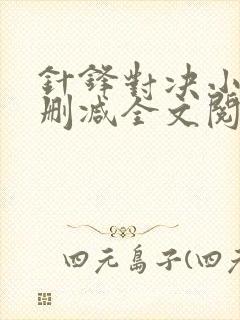 針鋒對决小
删减全文閱
四元島子(四元